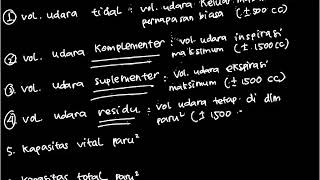 ① vol. udara tidal : vol. udara keluar masuk
pernapasan biasa (± 500 cc)
② vol. udara komplementer : vol. udara inspirasi
maksimum (± 1500 cc)
③ vol. udara suplementer : vol. udara ekspirasi
maksimum (± 1500 cc)
④ vol. udara residu : vol. udara tetap di dlm
paru² (± 1500
5. kapasitas vital paru²
kapasitas total paru²